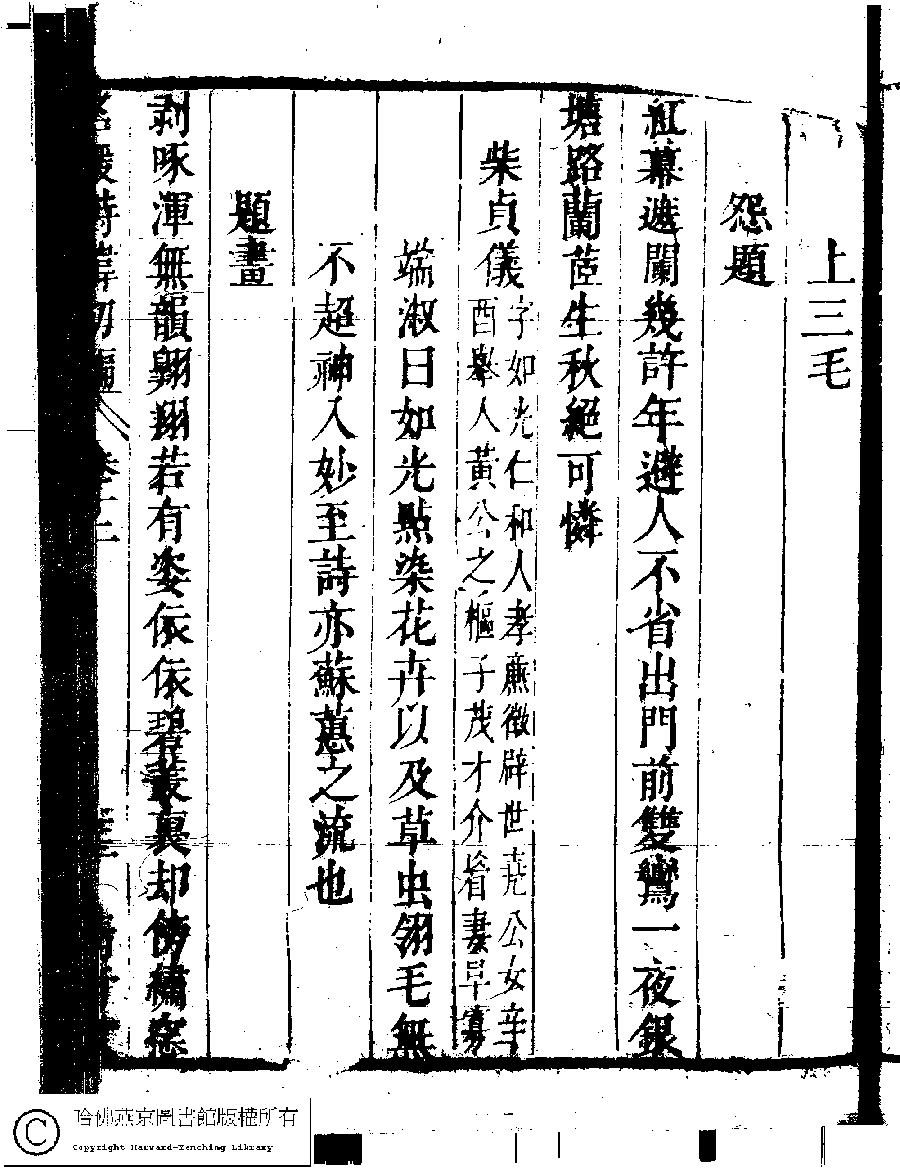 上三毛
怨題
紅幕遮闌幾許年避人不省出門前雙鸞一夜銀
塘路蘭茝生秋絕可憐
柴貞儀
字如光仁和人孝廉徵辟世堯公女辛
酉舉人黃公之樞子茂才介眉妻早寡
端淑曰如光點染花卉以及草虫翎毛無
不超神入妙至詩亦蘇蕙之流也
題畫
剥啄渾無韻翺翔若有姿依依碧叢裏却傍繡窓
哈佛燕京圖書館版權所有
Copyright Harvard-Yenching Library